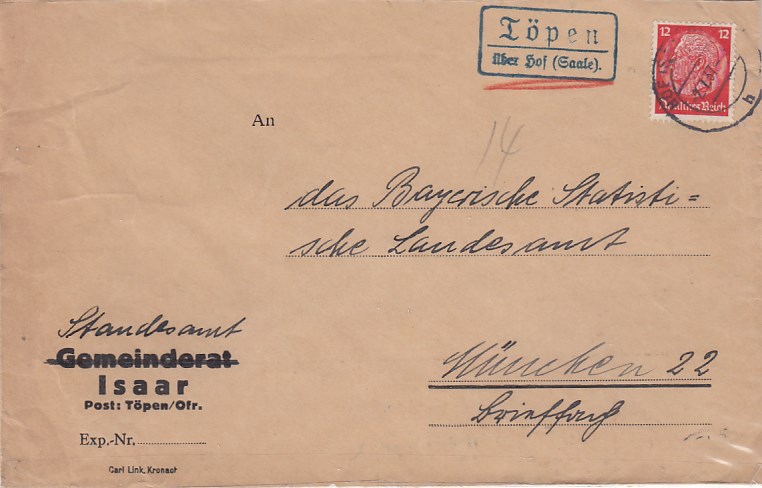 Töpen
über Hof (Saale).
12 12
Deutsches Reich
h
An
14
das Bayerische Statisti=
sche Landesamt
Standesamt
Gemeinderat
Isaar
Post: Töpen/Ofr.
München 22
Brieffach
Exp.-Nr.
Carl Link, Kronach